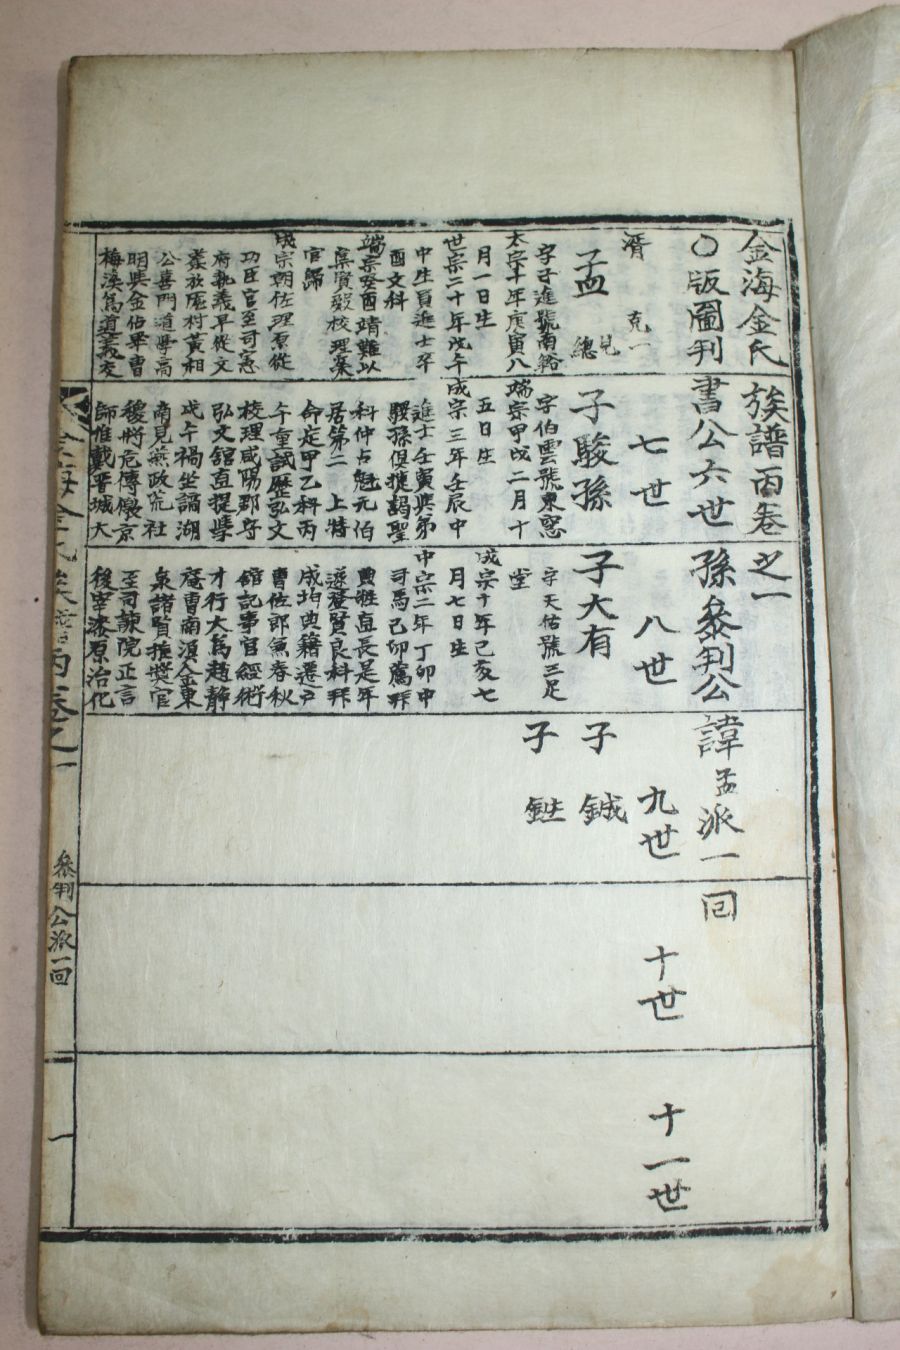 金海金氏族譜丙卷之一
〇版圖判書公六世孫參判公諱孟派一回
湑 克一
七世
八世
九世
十世
十一世
子孟 兄總
字子進號南谿
太宗十年庚寅八
月一日生
世宗二十年戊午
中生員進士辛
酉文科
端宗癸酉靖難以
集賢殿校理棄
官歸
成宗朝佐理原從
功臣官至司憲
府執義早從文
放厖村黃相
公喜門道學高
明與金佔畢曹
梅溪爲道義交
子駿孫
字伯雲號東窓
端宗甲戌二月十
五日生
成宗三年壬辰中
進士壬寅與弟
馹孫俱捷謁聖
科仲占魁元伯
居第二 上特
命定甲乙科丙
午重試歷弘文
校理咸陽郡守
弘文舘直提學
戊午禍坐謫湖
南見燕政荒社
稷將危傳檄京
師推戴晋城大
子大有
字天佑號三足
堂
成宗十年己亥七
月七日生
中宗二年丁卯中
司馬己卯薦拜
典牲直長是年
遂登賢良科拜
成均典籍遷戶
曹佐郎兼春秋
舘記事官經術
才行大爲趙靜
庵曹南溟金東
泉諸賢推奬官
至司諫院正言
後宰漆原治化
子 鋮
子 鉎
金海金氏族譜丙卷之一 參判公派一回 一